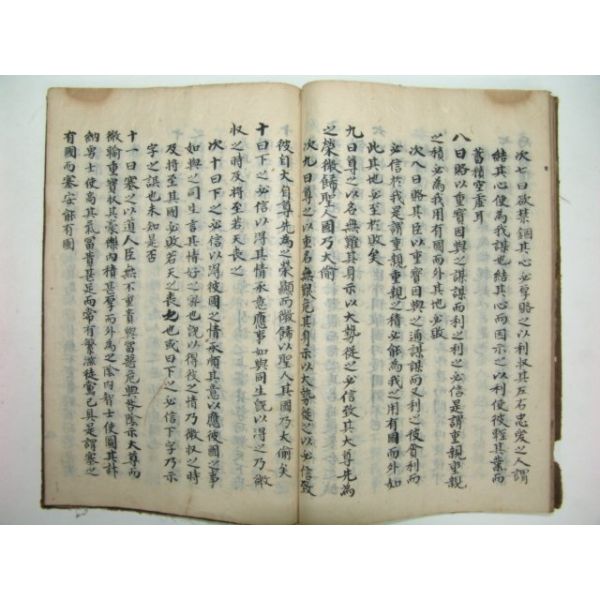 次七曰欲禁錮其心必厚賂之以利收其左右忠愛之人謂
結其心使為我謀也結其心而因示之以利使彼輕其業而
蓄積空虛耳
八曰賂以重寶因與之謀謀而利之利之必信是謂重親重親
之積必為我用有國而外其地必敗
次八曰賂其臣以重寶因與之通謀謀而又利之彼貪利而
必信於我是謂重親重親之積必能為我之用有國而外如
此其地必至於敗矣
九曰尊之以名無難其身示以大勢從之必信致其大尊先為
之榮微飾聖人國乃大偷
次九曰尊之以重名無艱危其身示以大勢從之以必信致
彼自大自尊先為之榮顯而微飾以聖人其國乃大偷矣
十曰下之必信以得其情承意應事如與同生既以得之乃微
收之時及將至若天喪之
次十曰下之必信以得彼國之情承順其意以應彼國之事
如與之同生言其情好之深也既以得彼之情乃微收之時
及將至其國必敗若天之喪之也或曰下之必信下字乃示
字之誤也未知是否
十一曰塞之以道人臣無不重貴與富惡危與咎陰示大尊而
微輸重寶收其豪傑內積甚厚而外為乏陰內智士使圖其計
納勇士使高其氣富貴甚足而常有繁滋徒黨已具是謂塞之
有國而塞安能有國